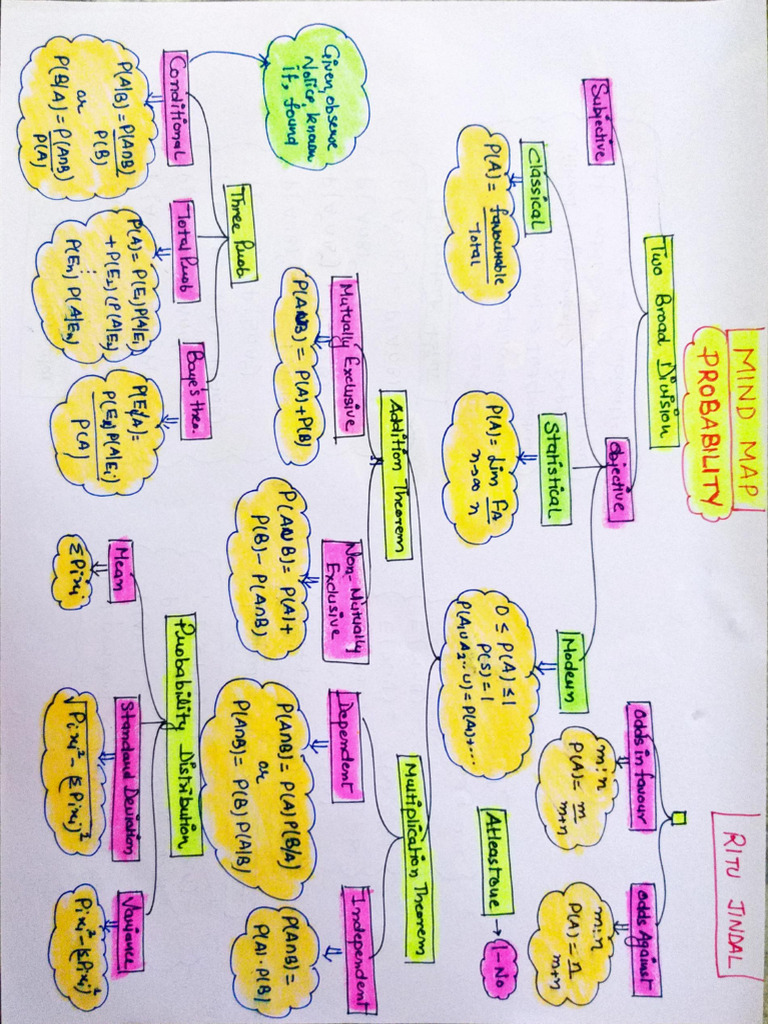 MIND MAP
PROBABILITY
RITU JINDAL
Two Broad Division
Subjective
Objective
Classical
P(A) = favourable
Total
Statistical
P(A) = Lim FA
n→∞ n
Modern
0 ≤ P(A) ≤ 1
P(S) = 1
P(A₁UA₂...U) = P(A₁)+...
Odds in favour
m:n
P(A) = m
m+n
Odds Against
m:n
P(A) = n
m+n
Atleast one → 1-No
Addition Theorem
Mutually Exclusive
P(AUB) = P(A)+P(B)
Non-Mutually
Exclusive
P(AUB) = P(A)+
P(B) - P(A∩B)
Multiplication Theorem
Dependent
P(A∩B) = P(A) P(B/A)
or
P(A∩B) = P(B) P(A/B)
Independent
P(A∩B) =
P(A).P(B)
Three Prob
Given, observe
Notice, known
if, found
Conditional
P(A/B) = P(A∩B)
or P(B)
P(B/A) = P(A∩B)
P(A)
Total Prob
P(A) = P(E₁)P(A/E₁)
+ P(E₂) (P(A/E₂)
⋮
P(En) P(A/En)
Baye's theo.
P(Ei/A) =
P(Ei) P(A/Ei)
P(A)
Probability Distribution
Mean
ΣPixi
Standard Deviation
√Pixi² - (ΣPixi)²
Variance
Pixi² - (ΣPixi)²